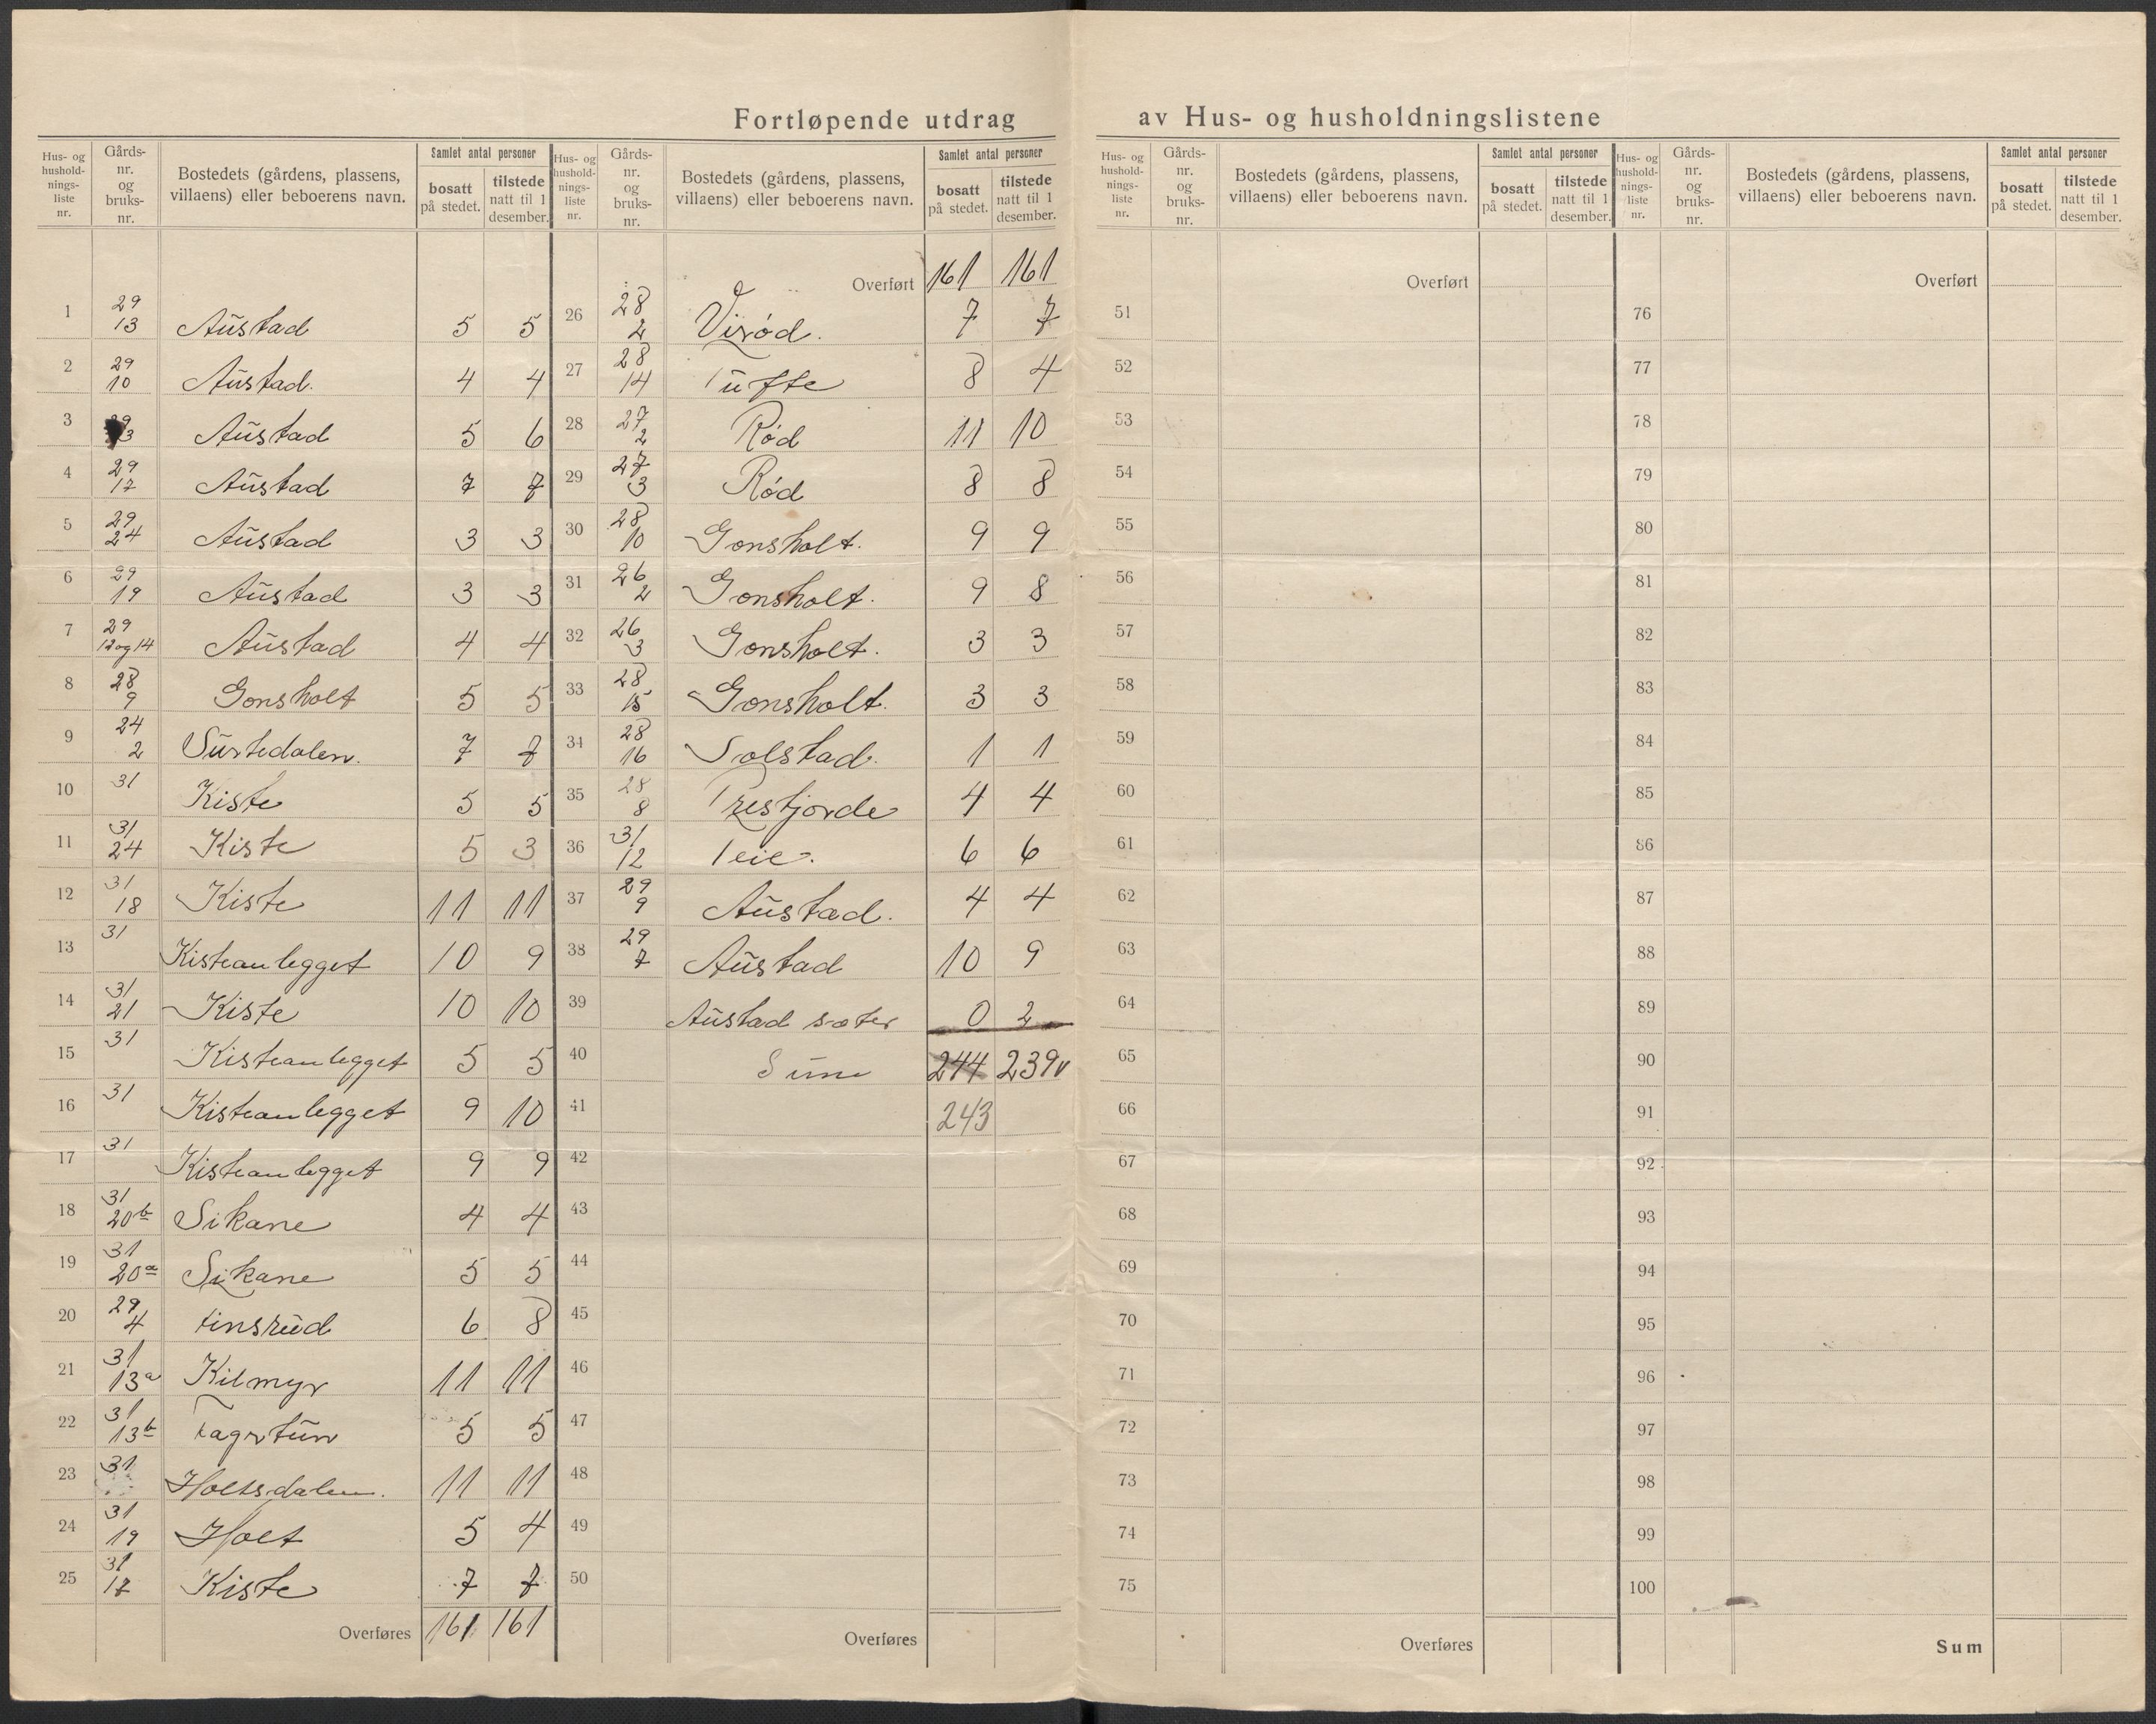 Fortløpende utdrag av Hus- og husholdningslistene
Hus- og hushold- nings- liste nr. Gårds- nr. og bruks- nr. Bostedets (gårdens, plassens, villaens) eller beboerens navn. Samlet antal personer bosatt på stedet. tilstede natt til 1 desember.
1 29 13 Austad 5 5
2 29 10 Austad. 4 4
3 29 Austad 5 6
4 29 17 Austad 7 7
5 29 24 Austad 3 3
6 29 19 Austad 3 3
7 29 12 og 14 Austad 4 4
8 28 9 Gonsholt 5 5
9 24 2 Surtedalen. 7 7
10 31 Kiste 5 5
11 31 24 Kiste 5 3
12 31 18 Kiste 11 11
13 31 Kisteanlegget 10 9
14 31 21 Kiste 10 10
15 31 Kisteanlegget 5 5
16 31 Kisteanlegget 9 10
17 31 Kisteanlegget 9 9
18 31 20b Sikane 4 4
19 31 20a Sikane 5 5
20 29 4 Finsrud 6 8
21 31 13a Kilmyr 11 11
22 31 13b Fagertun 5 5
23 31 Holtsdalen. 11 11
24 31 19 Holt 5 4
25 31 17 Kiste 7 7
Overføres 161 161
Hus- og hushold- nings- liste nr. Gårds- nr. og bruks- nr. Bostedets (gårdens, plassens, villaens) eller beboerens navn. Samlet antal personer bosatt på stedet. tilstede natt til 1 desember.
Overført 161 161
26 28 2 Virød. 7 7
27 28 14 Tufte 8 4
28 27 2 Rød 11 10
29 27 3 Rød 8 8
30 28 10 Gonsholt. 9 9
31 26 2 Gonsholt. 9 8
32 26 3 Gonsholt. 3 3
33 28 15 Gonsholt. 3 3
34 28 16 Solstad. 1 1
35 28 8 Prestjorde 4 4
36 31 12 Teie. 6 6
37 29 9 Austad. 4 4
38 29 7 Austad 10 9
39 Austad sæter 0 2
40 Sum 244 239
41 243
42
43
44
45
46
47
48
49
50
Overføres
Hus- og hushold- nings- liste nr. Gårds- nr. og bruks- nr. Bostedets (gårdens, plassens, villaens) eller beboerens navn. Samlet antal personer bosatt på stedet. tilstede natt til 1 desember.
Overført
51
52
53
54
55
56
57
58
59
60
61
62
63
64
65
66
67
68
69
70
71
72
73
74
75
Overføres
Hus- og hushold- nings- liste nr. Gårds- nr. og bruks- nr. Bostedets (gårdens, plassens, villaens) eller beboerens navn. Samlet antal personer bosatt på stedet. tilstede natt til 1 desember.
Overført
76
77
78
79
80
81
82
83
84
85
86
87
88
89
90
91
92
93
94
95
96
97
98
99
100
Sum